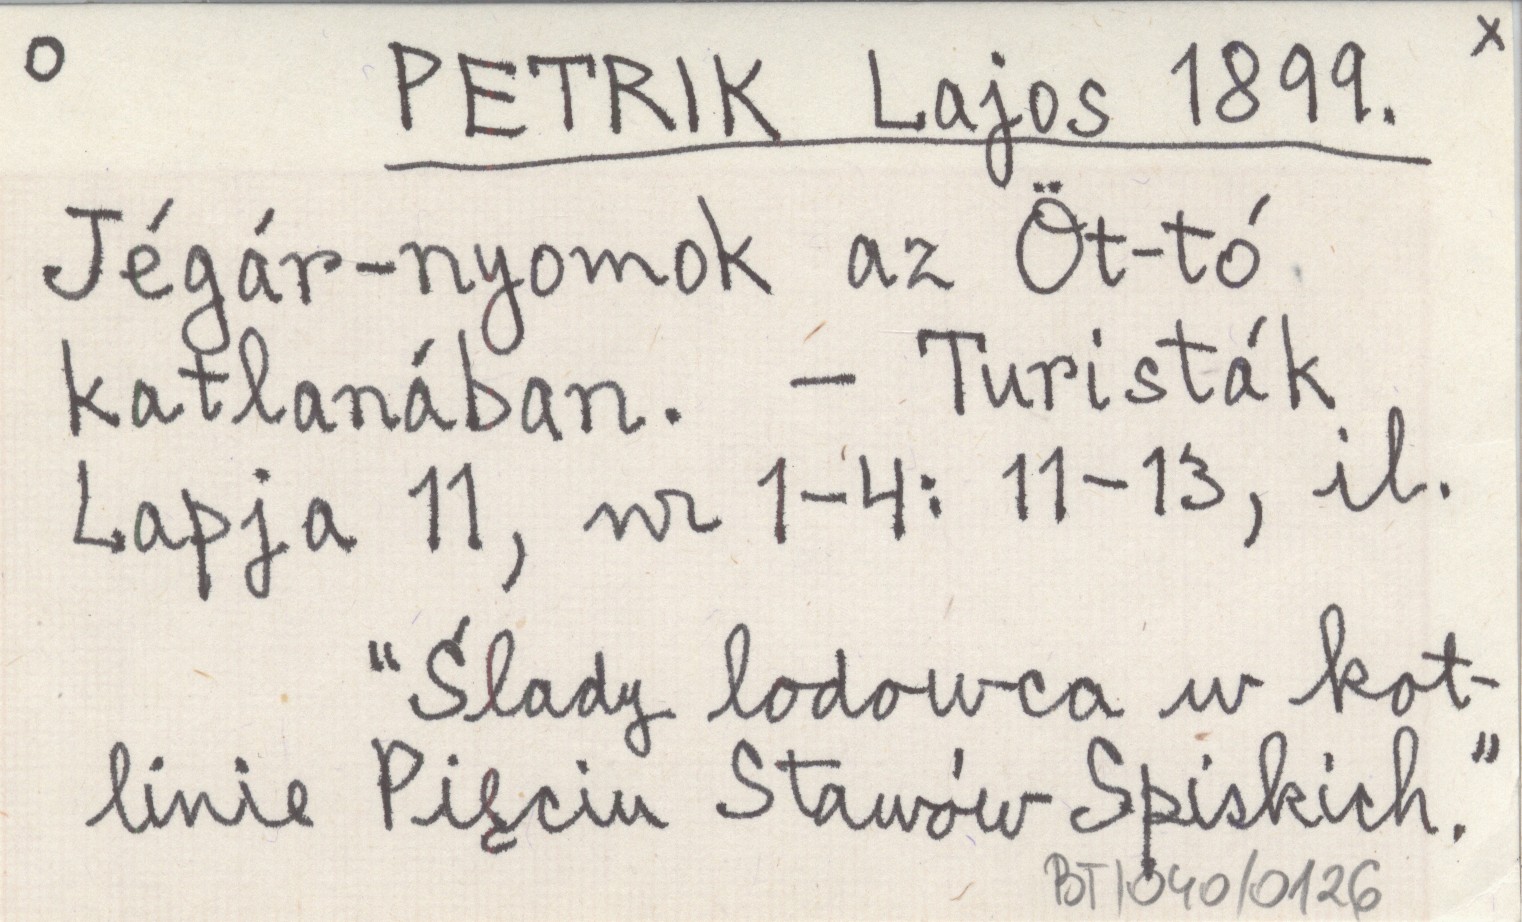 O PETRIK Lajos 1899. x
Jégár-nyomok az Öt-tó
katlanában. - Turisták
Lapja 11, nr 1-4: 11-13, il.
"Ślady lodowca w kot-
linie Pięciu Stawów Spiskich."
BT/040/0126